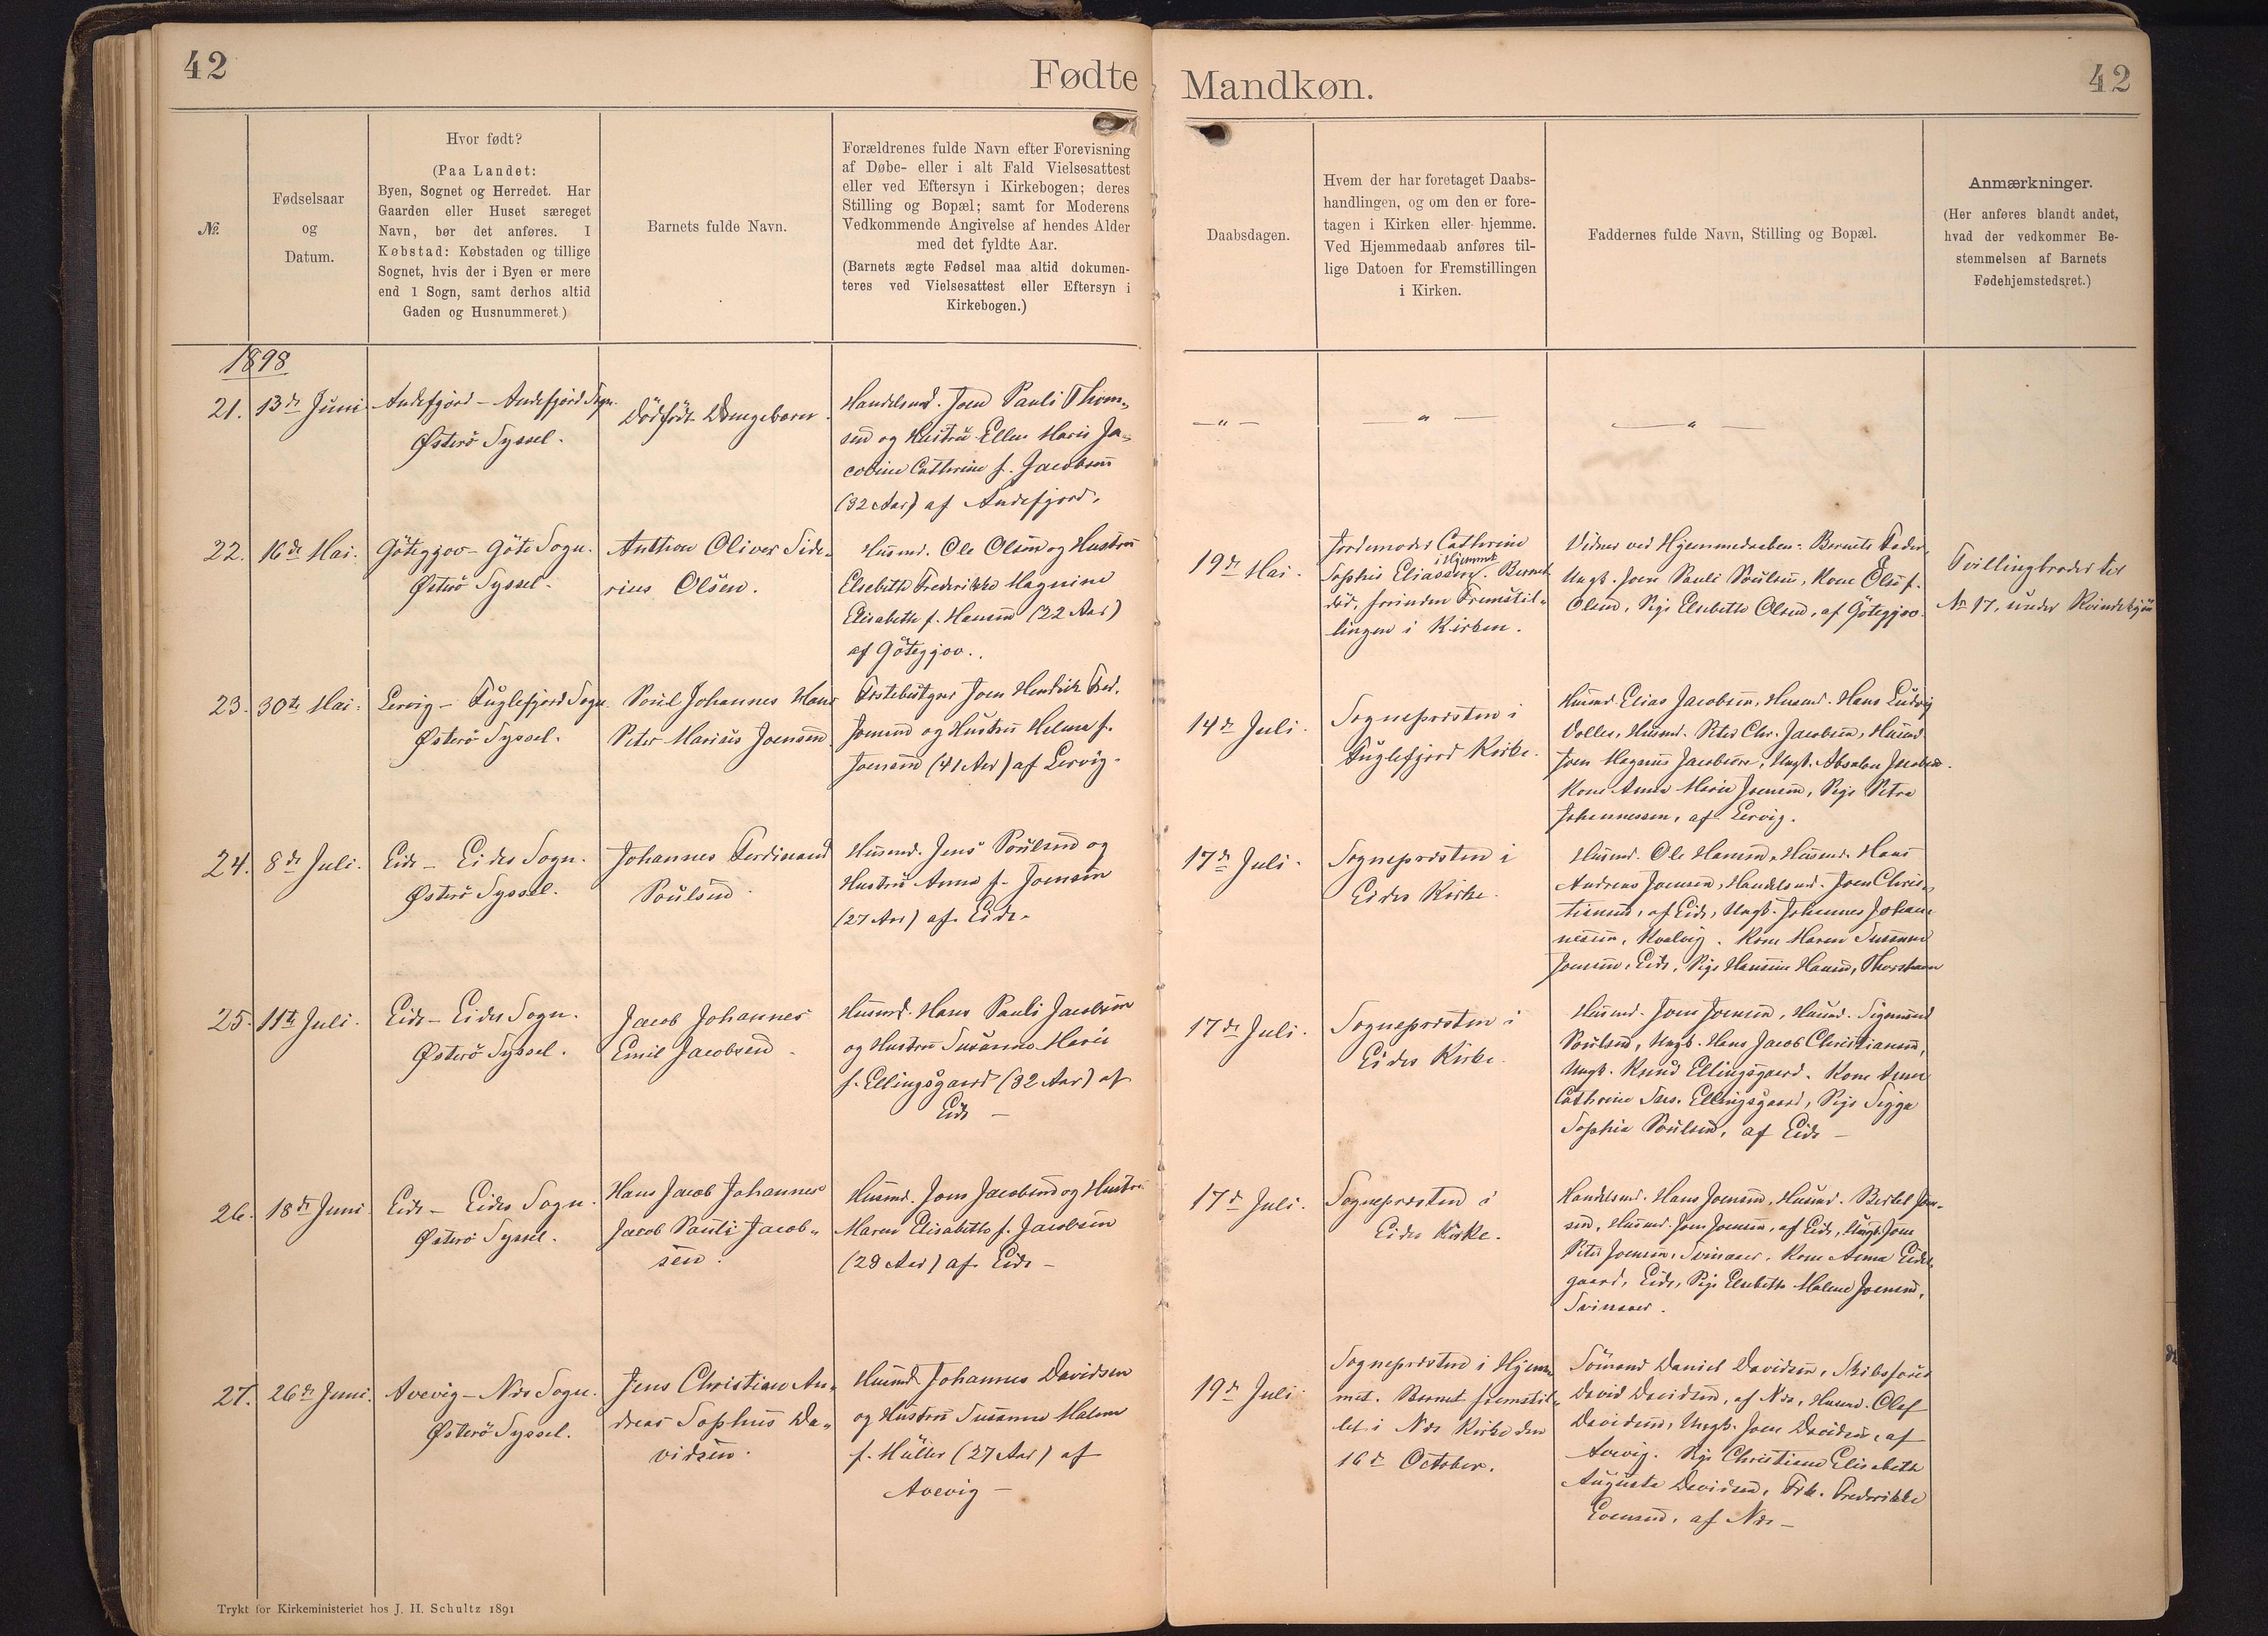 42
Fødte
Mandkøn.
42
№
Fødselsaar
og
Datum.
Hvor født?
(Paa Landet:
Byen, Sognet og Herredet. Har
Gaarden eller Huset særeget
Navn, bør det anføres. I
Købstad: Købstaden og tillige
Sognet, hvis der i Byen er mere
end 1 Sogn, samt derhos altid
Gaden og Husnummeret)
Barnets fulde Navn.
Forældrenes fulde Navn efter Forevisning
af Døbe- eller i alt Fald Vielsesattest
eller ved Eftersyn i Kirkebogen; deres
Stilling og Bopæl; samt for Moderens
Vedkommende Angivelse af hendes Alder
med det fyldte Aar.
(Barnets ægte Fødsel maa altid dokumen-
teres ved Vielsesattest eller Eftersyn i
Kirkebogen.)
Daabsdagen.
Hvem der har foretaget Daabs-
handlingen, og om den er fore-
tagen i Kirken eller hjemme.
Ved Hjemmedaab anføres til-
lige Datoen for Fremstillingen
i Kirken.
Faddernes fulde Navn, Stilling og Bopæl.
Anmærkninger.
(Her anføres blandt andet,
hvad der vedkommer Be-
stemmelsen af Barnets
Fødehjemstedsret.)
1898
21.
13de Juni
Andefjord - Andefjord Sogn.
Østerö Syssel.
Dödfödt Drengebarn.
Handelsmd. Joen Pauli Thom-
sen og Hustru Ellen Marie Ja-
cobine Cathrine f. Jacobsen
(32 Aar) af Andefjord.
— „ —
— „ —
— „ —
22.
16de Mai.
Götegjov - Göte Sogn.
Østerö Syssel.
Anthon Oliver Side-
rius Olsen.
Husmd. Ole Olsen og Hustru
Elsebeth Frederikke Magnine
Elisabeth f. Hansen (22 Aar)
af Götegjov.
19de Mai.
Jordemoder Cathrine
i Hjemmet
Sophie Eliassen. Barnet
död, forinden Fremstil-
lingen i Kirken.
Vidner ved Hjemmedaaben: Barnets Fader,
Ungk. Joen Pauli Poulsen, Kone Else f.
Olsen, Pige Elsebeth Olsen, af Götegjov.
Tvillingbroder til
Nr 17, under Kvindekjön
23.
30te Mai.
Lervig - Fuglefjord Sogn
Østerö Syssel.
Poul Johannes Hans
Peter Marius Joensen.
Fæstebestyrer Joen Hendrik Fred.
Joensen og Hustru Helena f.
Joensen (41 Aar) af Lervig.
14de Juli.
Sognepræsten i
Fuglefjord Kirke.
Husmd Elias Jacobsen, Husmd. Hans Ludvig
Volles, Husmd. Peter Chr. Jacobsen, Husmd.
Joen Magnus Jacobsen, Ungk. Absalon Jacobsen.
Kone Anna Marie Joensen, Pige Petra
Johannessen, af Lervig.
24.
8de Juli.
Eide - Eides Sogn.
Østerö Syssel.
Johannes Ferdinand
Poulsen.
Husmd. Jens Poulsen og
Hustru Anna f. Joensen
(27 Aar) af Eide.
17de Juli.
Sognepræsten i
Eides Kirke.
Husmd. Ole Hansen, Husmd. Hans
Andreas Joensen, Handelsmd. Joen Chris-
tiansen, af Eide, Ungk. Johannes Johan-
nesen, Kvalvig. Kone Maren Susanne
Joensen, Eide, Pige Hansine Hansen, Thorshavn
25.
11te Juli.
Eide - Eides Sogn.
Østerö Syssel.
Jacob Johannes
Emil Jacobsen.
Husmd. Hans Pauli Jacobsen
og Hustru Susanne Marie
f. Ellingsgaard (32 Aar) af
Eide —
17de Juli.
Sognepræsten i
Eides Kirke.
Husmd. Joen Joensen, Husmd. Sigmund
Poulsen, Ungk. Hans Jacob Christiansen,
Ungk. Knud Ellingsgaard. Kone Anne
Cathrine Sus. Ellingsgaard, Pige Sigga
Sophie Poulsen, af Eide —
26.
18de Juni.
Eide - Eides Sogn.
Østerö Syssel.
Hans Jacob Johannes
Jacob Pauli Jacob-
sen.
Husmd. Joen Jacobsen og Hustru
Maren Elisabeth f. Jacobsen
(28 Aar) af Eide —
17de Juli.
Sognepræsten i
Eides Kirke.
Handelsmd. Hans Joensen, Husmd. Bertel Joen-
sen, Husmd. Joen Joensen, af Eide, Ungk. Joen
Peter Joensen, Svinaaer. Kone Anna Eides-
gaard, Eide, Pige Elsebeth Malene Joensen,
Svinaaer.
27.
26de Juni.
Avevig - Næs Sogn.
Østerö Syssel.
Jens Christian An-
dreas Sophus Da-
vidsen.
Husmd. Johannes Davidsen
og Hustru Susanne Malene
f. Müller (27 Aar) af
Avevig —
19de Juli.
Sognepræsten i Hjem-
met. Barnet fremstil-
let i Næs Kirke den
16de October.
Sömand Daniel Davidsen, Skibsförer
David Davidsen, af Næs, Husmd. Olef
Davidsen, Ungk. Joen Davidsen, af
Avevig. Pige Christiane Elisabeth
Augusta Davidsen, Frk. Frederikke
Evensen, af Næs —
Trykt for Kirkeministeriet hos J. H. Schultz 1891